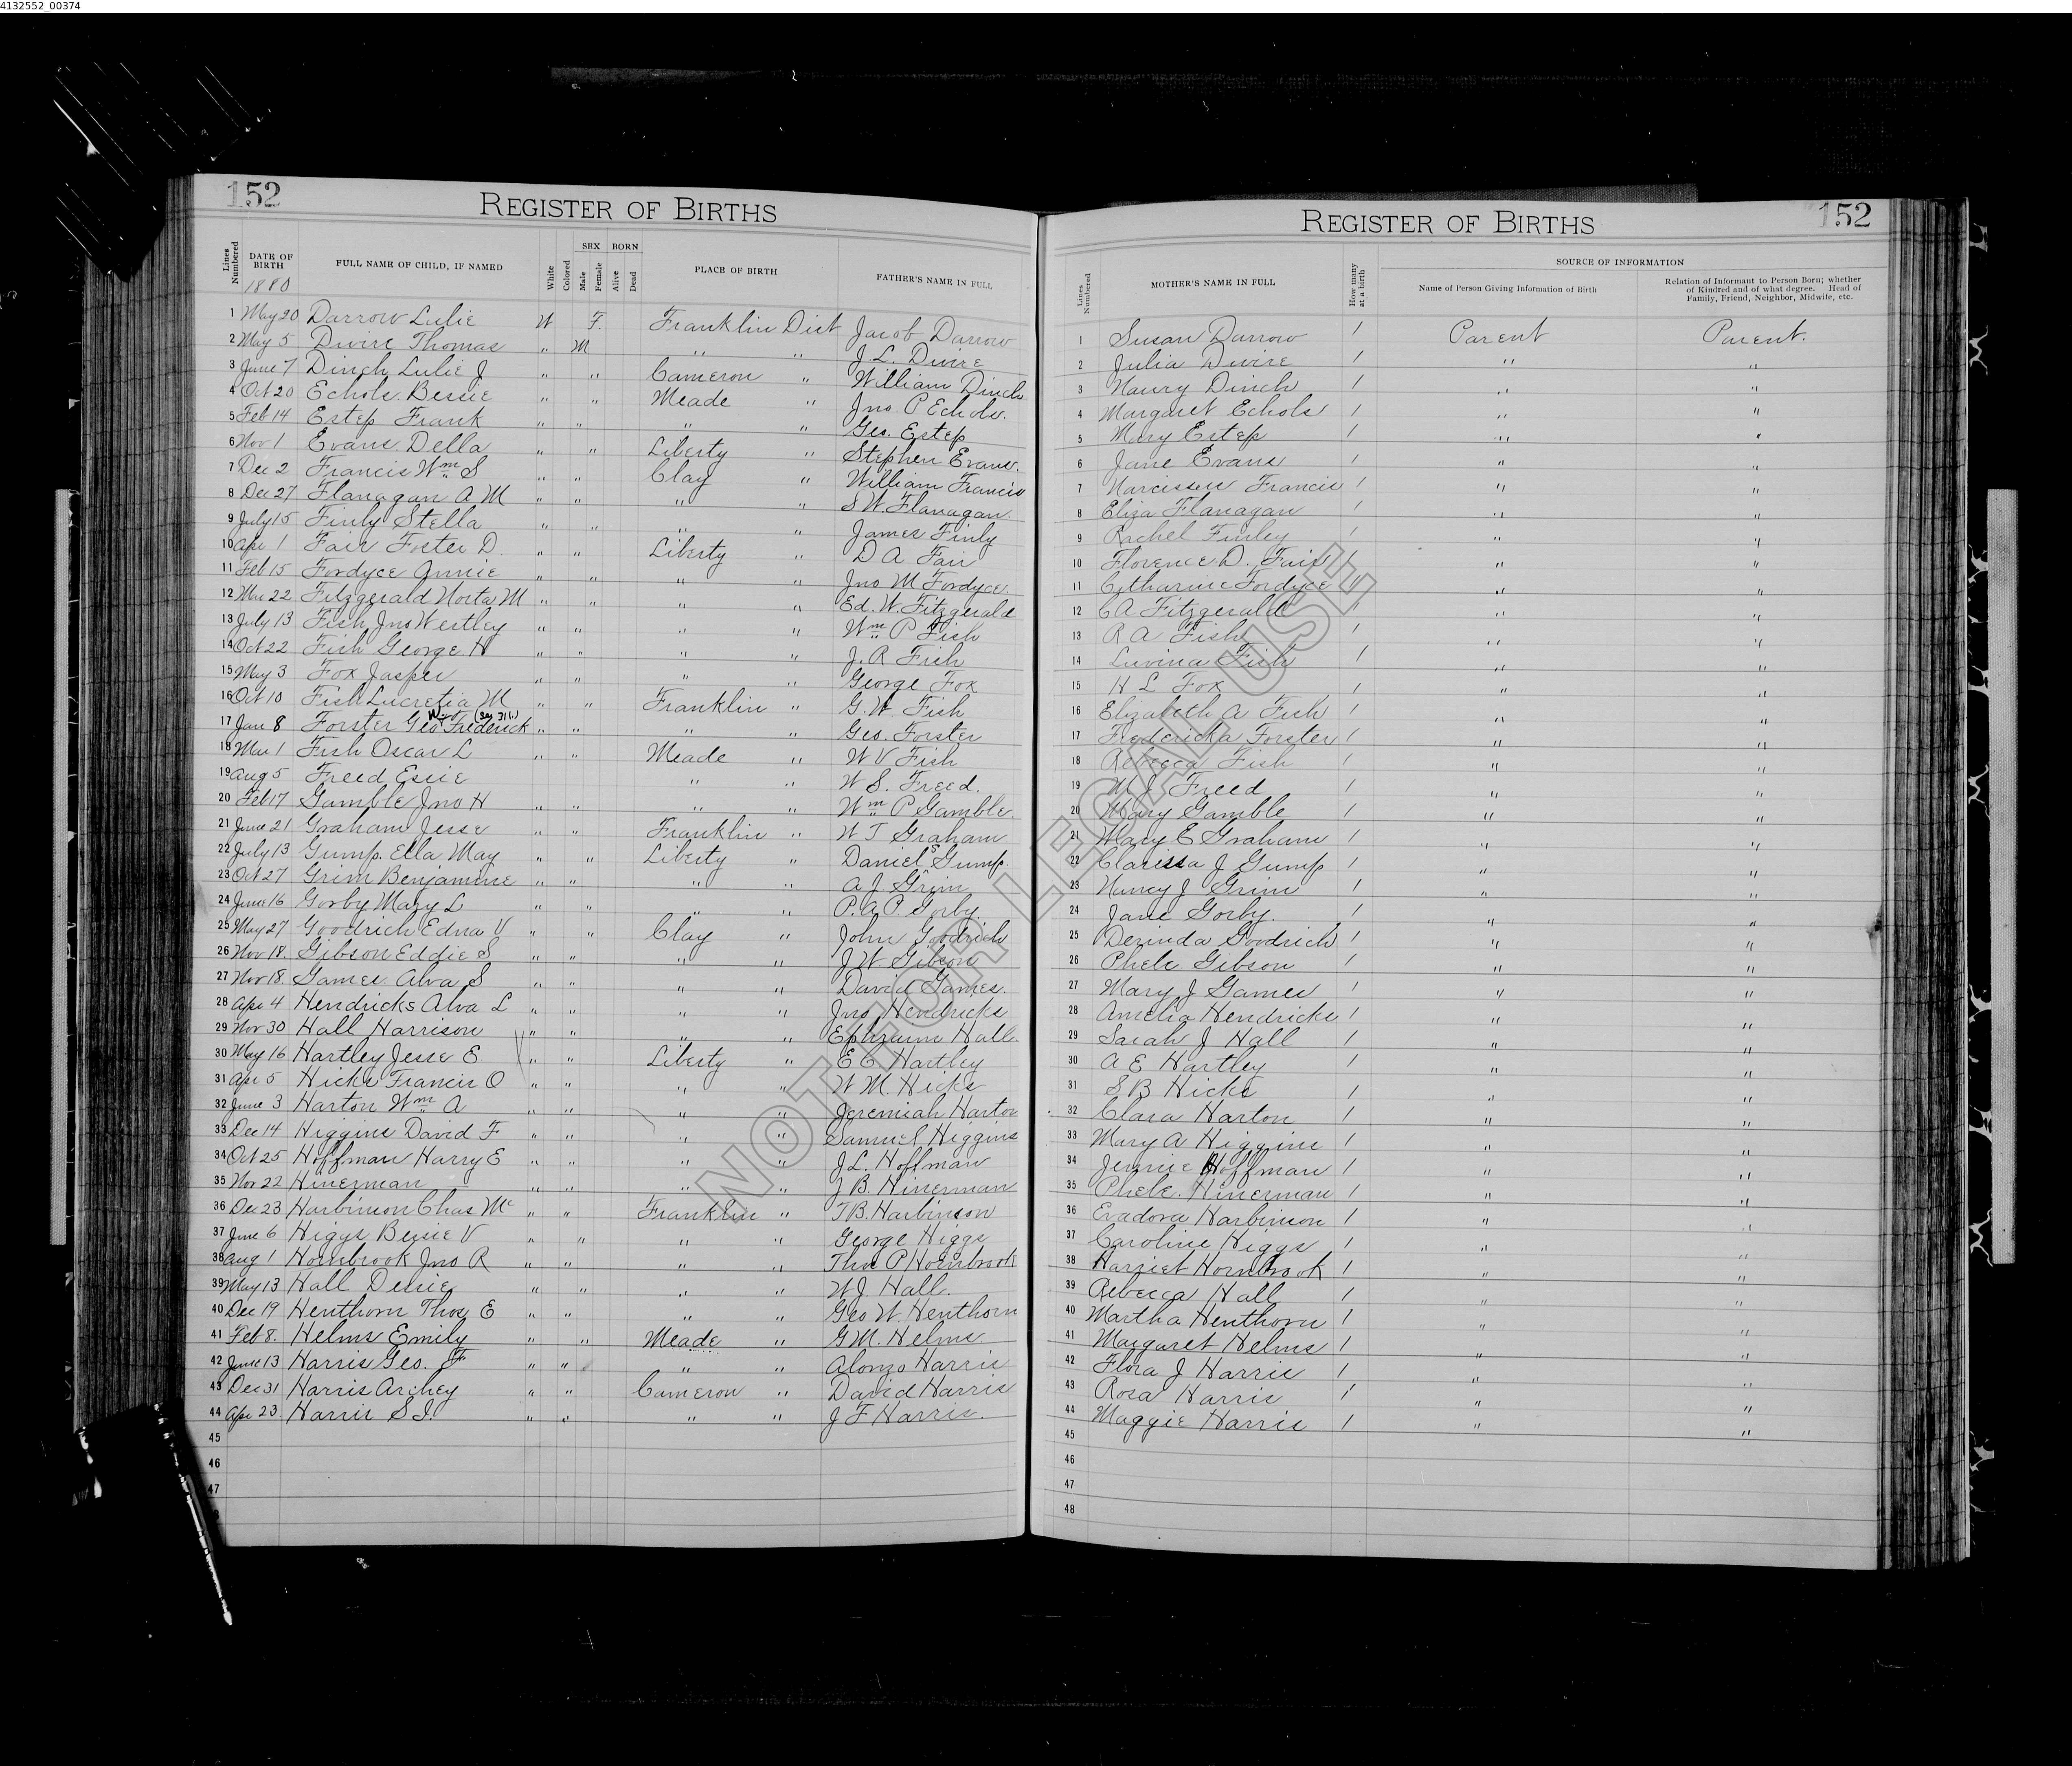 4132552_00374
152
REGISTER OF BIRTHS
Lines Numbered DATE OF BIRTH FULL NAME OF CHILD, IF NAMED White Colored SEX Male Female BORN Alive Dead PLACE OF BIRTH FATHER'S NAME IN FULL
1880
1 May 20 Darrow Lulie W F. Franklin Dist Jacob Darrow
2 May 5 Divire Thomas " M " " J. L. Divire
3 June 7 Dinch Lulie J " " Cameron " William Dinch
4 Oct 20 Echols Bessie " " Meade " Jno P Echols.
5 Feb 14 Estep Frank " " " " Geo. Estep
6 Nov 1 Evans Della " " Liberty " Stephen Evans.
7 Dec 2 Francis Wm S " " Clay " William Francis
8 Dec 27 Flanagan A M " " " " S W. Flanagan.
9 July 15 Finly Stella " " " " James Finly
10 Apr 1 Fair Foster D. " " Liberty " D A Fair
11 Feb 15 Fordyce Annie " " " " Jno M Fordyce.
12 Mar 22 Fitzgerald Norta M " " " " Ed. W. Fitzgerald
13 July 13 Fish Jno Westley " " " " Wm P Fish
14 Oct 22 Fish George H " " " " J. R Fish
15 May 3 Fox Jasper " " " " George Fox
16 Oct 10 Fish Lucretia M " " Franklin " G. W. Fish
17 Jan 8 Forster Geo Frederick " " " " Geo. Forster
18 Mar 1 Fish Oscar L " " Meade " W V Fish
19 Aug 5 Freed Essie " " W S. Freed.
20 Feb 17 Gamble Jno H " " " " Wm P Gamble.
21 June 21 Graham Jesse " " Franklin " W T Graham
22 July 13 Gump. Ella May " " Liberty " Daniel S Gump.
23 Oct 27 Grim Benjamine " " " " A. J. Grim
24 June 16 Gorby Mary L " " " " P. A. P Gorby.
25 May 27 Goodrich Edna V " " Clay " John Goodrich
26 Nov 18. Gibson Eddie S " " " " J W Gibson
27 Nov 18. Games Alva S " " " " David Games.
28 Apr 4 Hendricks Alva L " " " " Jno Hendricks
29 Nov 30 Hall Harrison " " " " Ephraim Hall.
30 May 16 Hartley Jesse E. " " Liberty " E C Hartley
31 Apr 5 Hicks Francis O " " " " W M. Hicks
32 June 3 Harton Wm A " " " " Jeremiah Harton
33 Dec 14 Higgins David F " " " " Samuel Higgins
34 Oct 25 Hoffman Harry E " " " " J L. Hoffman
35 Nov 22 Hinerman " " " " J B. Hinerman
36 Dec 23 Harbinson Chas Mc " " Franklin " T B. Harbinson
37 June 6 Higgs Bessie V " " " " George Higgs
38 Aug 1 Hornbrook Jno R " " " " Thos P Hornbrook
39 May 13 Hall Delsie " " " " W J. Hall.
40 Dec 19 Henthorn Thos E " " " " Geo W. Henthorn
41 Feb 8. Helms Emily " " Meade " G M. Helms.
42 June 13 Harris Geo. F " " " " Alonzo Harris
43 Dec 31 Harris Archey " " Cameron " David Harris
44 Apr 23 Harris S I. " " " " J F Harris.
45
46
47
152
REGISTER OF BIRTHS
Lines Numbered MOTHER'S NAME IN FULL How many at a birth SOURCE OF INFORMATION
Name of Person Giving Information of Birth Relation of Informant to Person Born; whether of Kindred and of what degree. Head of Family, Friend, Neighbor, Midwife, etc.
1 Susan Darrow 1 Parent Parent.
2 Julia Divire 1 " "
3 Naury Dinch 1 " "
4 Margaret Echols 1 " "
5 Mary Estep 1 " "
6 Jane Evans 1 " "
7 Narcissus Francis 1 " "
8 Eliza Flanagan 1 " "
9 Rachel Finley 1 " "
10 Florence D. Fair 1 " "
11 Catharine Fordyce 1 " "
12 C A Fitzgerald 1 " "
13 R A Fish 1 " "
14 Luvina Fish 1 " "
15 H L Fox 1 " "
16 Elizabeth A Fish 1 " "
17 Fredericka Forster 1 " "
18 Rebecca Fish 1 " "
19 M J Freed 1 " "
20 Mary Gamble 1 " "
21 Mary E Graham 1 " "
22 Clarissa J Gump 1 " "
23 Nancy J Grim 1 " "
24 Jane Gorby. 1 " "
25 Derinda Goodrich 1 " "
26 Phebe Gibson 1 " "
27 Mary J Games 1 " "
28 Amelia Hendricks 1 " "
29 Sarah J Hall 1 " "
30 A E Hartley 1 " "
31 S B Hicks 1 " "
32 Clara Harton 1 " "
33 Mary A Higgins 1 " "
34 Jennie Hoffman 1 " "
35 Phebe Hinerman 1 " "
36 Evadora Harbinson 1 " "
37 Caroline Higgs 1 " "
38 Harriet Hornbrook 1 " "
39 Rebecca Hall 1 " "
40 Martha Henthorn 1 " "
41 Margaret Helms 1 " "
42 Flora J Harris 1 " "
43 Rosa Harris 1 " "
44 Maggie Harris 1 " "
45
46
47
48
NOT FOR LEGAL USE